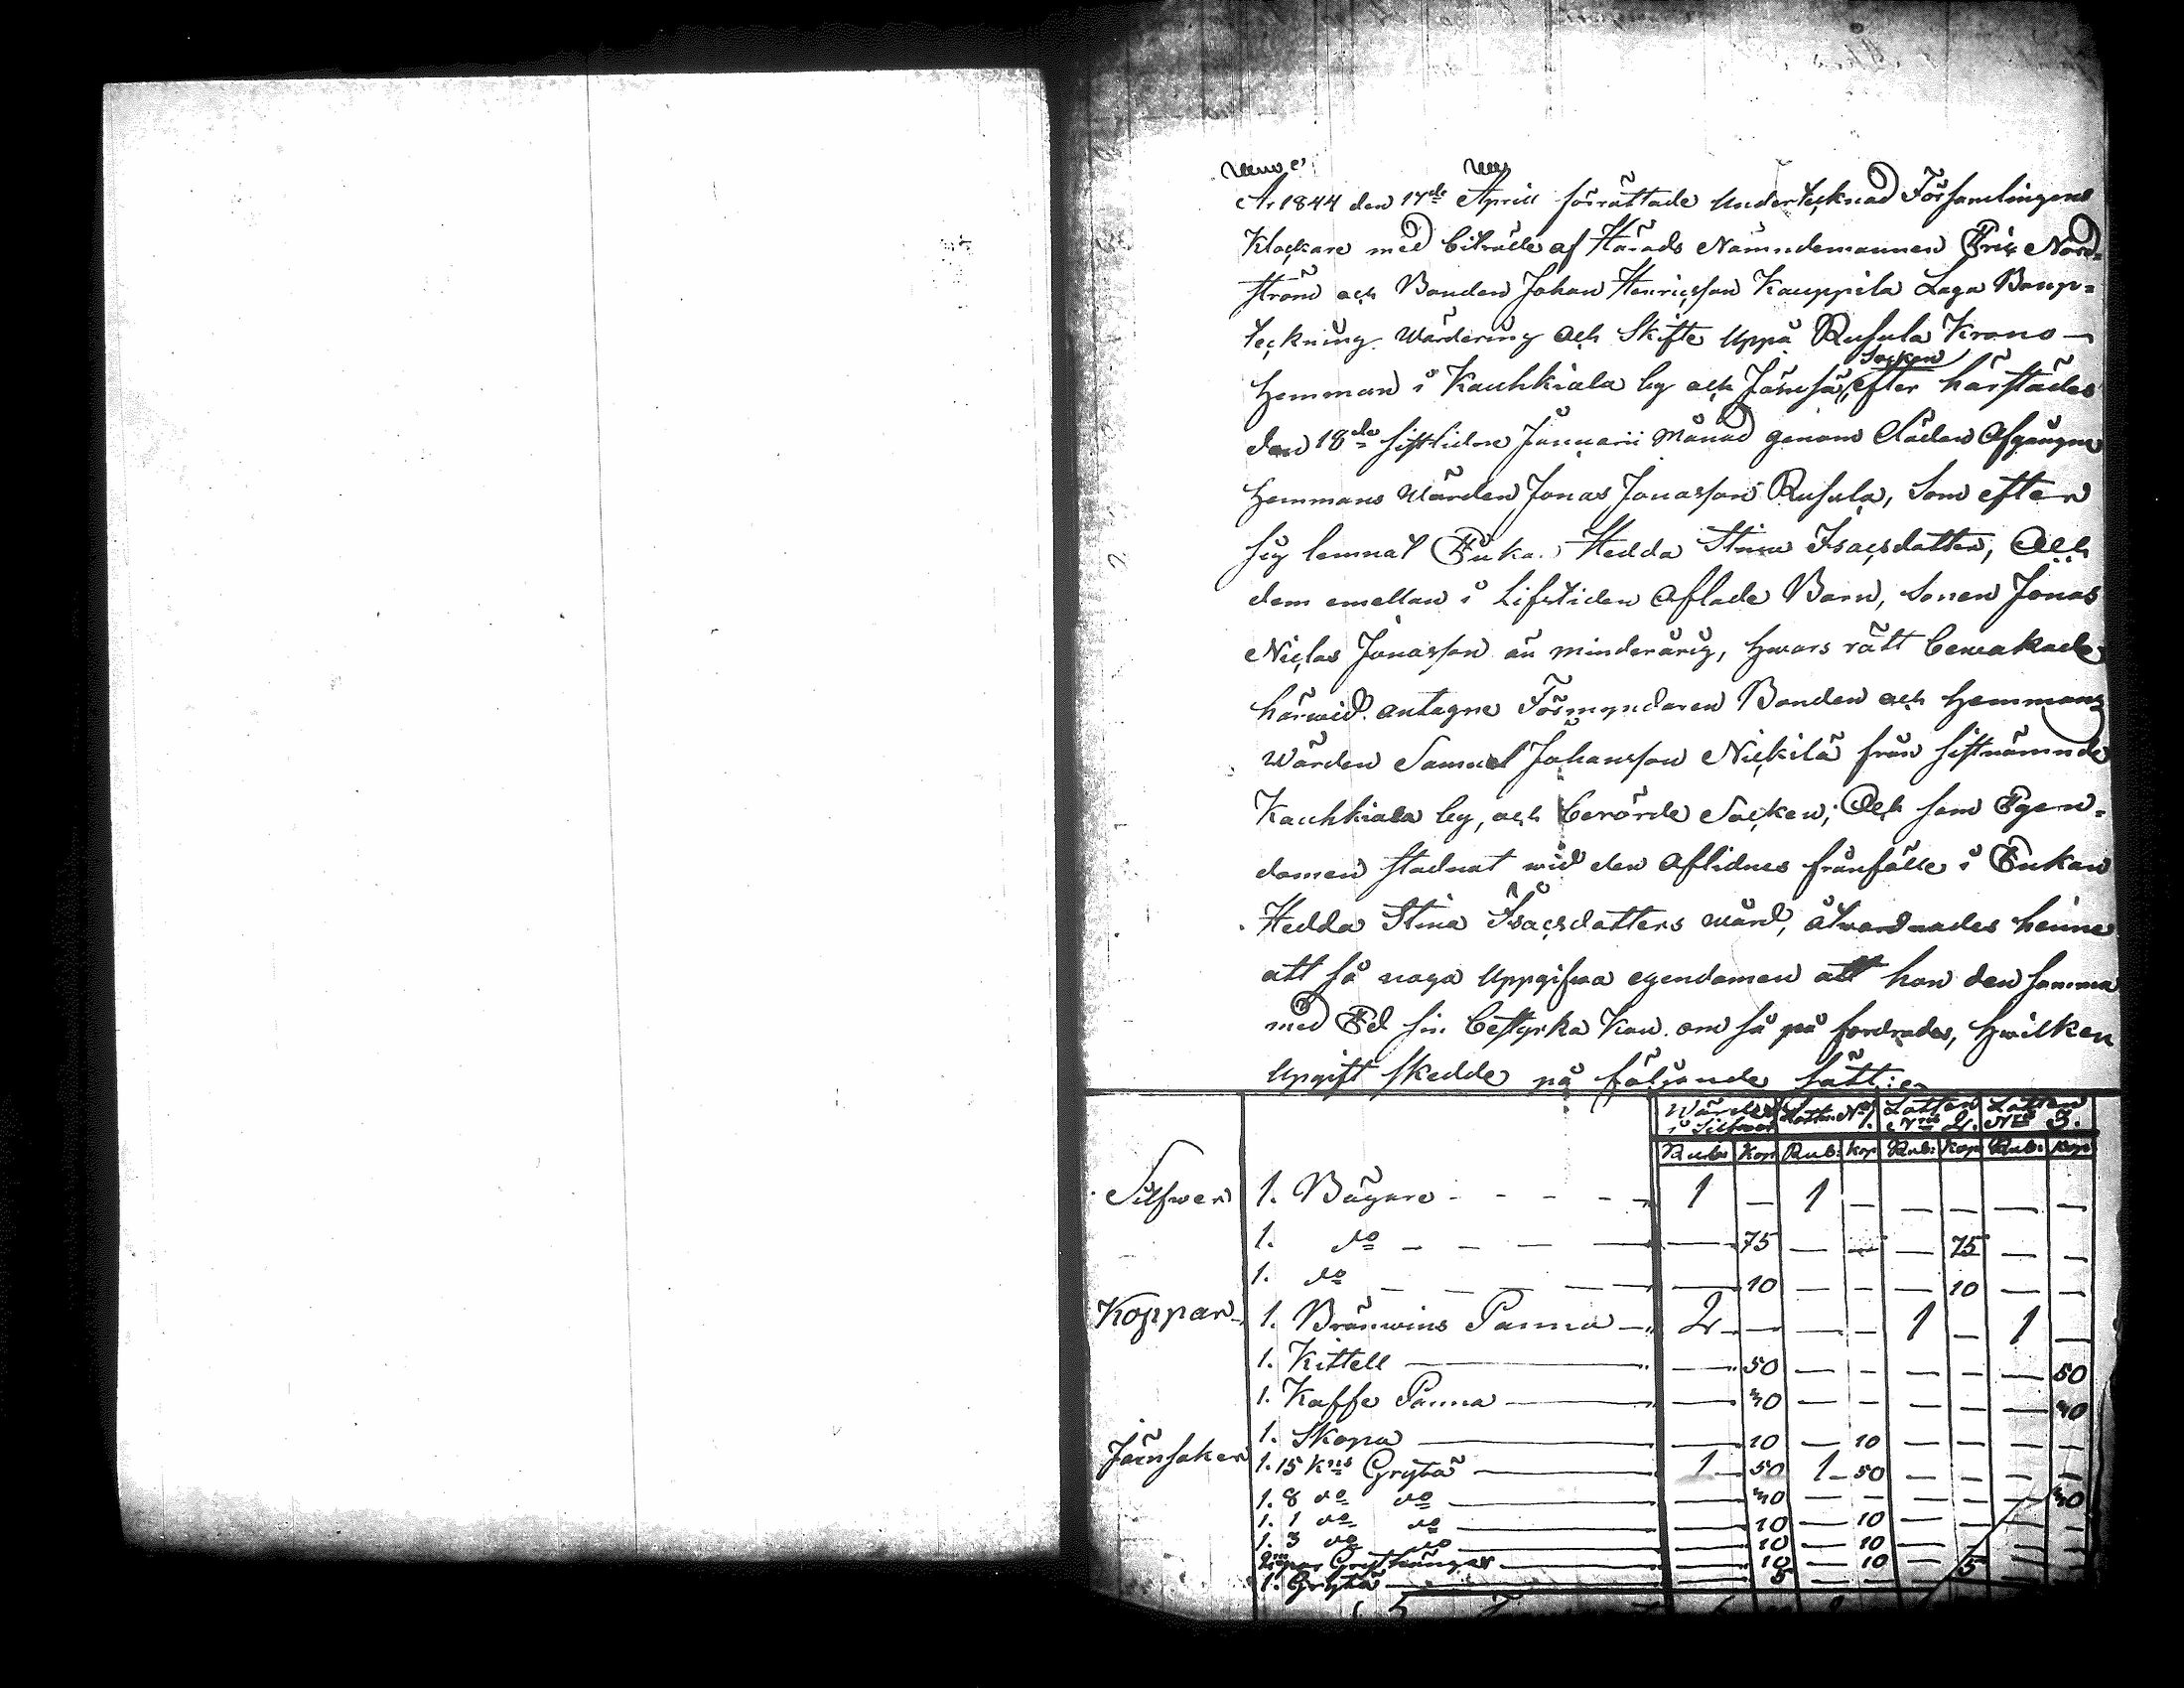 År 1844 den 17de Aprill förrättade Undertecknad Församlingens
Klockare med biträde af Härads Nämndemannen Eric Nord-
ström och Bonden Johan Henricsson Kauppila Laga Boup-
teckning Wärdering och Skifte uppå Rusula Krono
hemman i Kauhkiala by och Socken efter härstädes
den 18de sistlidne Januarii Månad genom Döden Afgångne
hemmans Wärden Jonas Jonasson Rusula, som efter
sig lemnat Enka Hedda Stina Isacsdatter, Och
dem emellan i Lifstiden Aflade Barn, Sonen Jonas
Niclas Jonasson än minderårig, hwars rätt bewakade
härwid antagne Förmyndaren Bonden och hemmans
Wärden Samuel Johansson Nickilä från sistnämnde
Kauhkiala by, och berörde Socken, Och som Egen-
domen stadnat wid den Aflidnes frånfälle i Enkan
Hedda Stina Isacsdatters wård, åtwarnades henne
att så noga Uppgifwa egendomen att hon den samma
med Ed sin bestyrka kan om så på fordrades, hwilken
Upgift skedde på följande sätt:
Wärdet i Silfwer Lotten No 1. Lotten No 2. Lotten No 3.
Rub: Kop Rub: Kop Rub: Kop Rub: Kop
Silfwer 1. Bägare - - - - 1 — 1 — — — — —
1. do — — — — — 75 — — — 75 — —
1. do — — — — — 10 — — — 10 — —
Koppar 1. Bränwins Panna — 2 — — — 1 — 1 —
1. Kittell — — 50 — — — — — 50
1. Kaffe Panna — — 40 — — — — — 40
1. Skopa — — 10 — 10 — — — —
Järnsaker 1. 15 Kns Gryta — 1 50 1 50 — — — —
1. 8 do do — — 40 — — — — — 40
1. 1 do do — — 10 — 10 — — — —
1. 3 do do — — 10 — 10 — — — —
2ne par Grythänger — — 10 — 10 — — — —
1. Gryta — — 5 — — — 5 — —